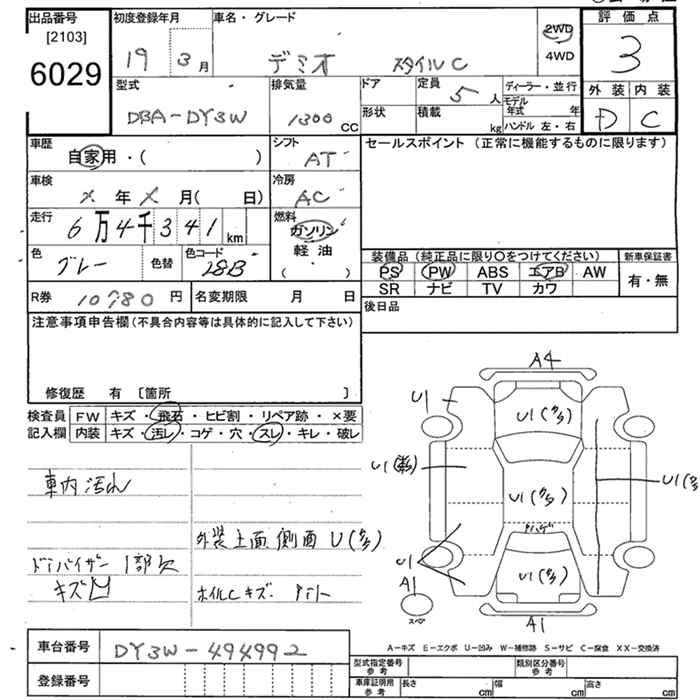 出品番号
[2103]
6029
初度登録年月
19 3月
車名・グレード
デミオ スタイルC
2WD
4WD
評価点
3
外装 内装
D C
型式
DBA-DY3W
排気量
1300 CC
ドア
形状
定員
5 人
積載
kg
ディーラー・並行
モデル年式 年
ハンドル 左・右
車歴
自家用・( )
シフト
AT
セールスポイント (正常に機能するものに限ります)
車検
年 月( 日)
冷房
AC
走行
6万4千341 km
燃料
ガソリン
軽油
( ・ )
色
グレー
色替
色コード
28B
装備品 (純正品に限り〇をつけてください)
新車保証書
PS PW ABS エアB AW
SR ナビ TV カワ
有・無
R券 10780 円
名変期限 月 日
後日品
注意事項申告欄(不具合内容等は具体的に記入して下さい)
修復歴 有 〔箇所 〕
検査員 FW キズ・飛石・ヒビ割・リペア跡・×要
記入欄 内装 キズ・汚レ・コゲ・穴・スレ・キレ・破レ
A4
U1
U1(多)
U1(多)
U1(多)
U1
A1
スペア
U1(多)
A1
車内汚れ
外装上面側面 U(多)
ドアバイザー 1部欠
キズ凹
ホイルCキズ
車台番号 DY3W-494992
登録番号
A-キズ E-エクボ U-凹み W-補修跡 S-サビ C-腐食 XX-交換済
型式指定番号
参考
類別区分番号
参考
車庫証明用
参考
長さ cm 幅 cm 高さ cm